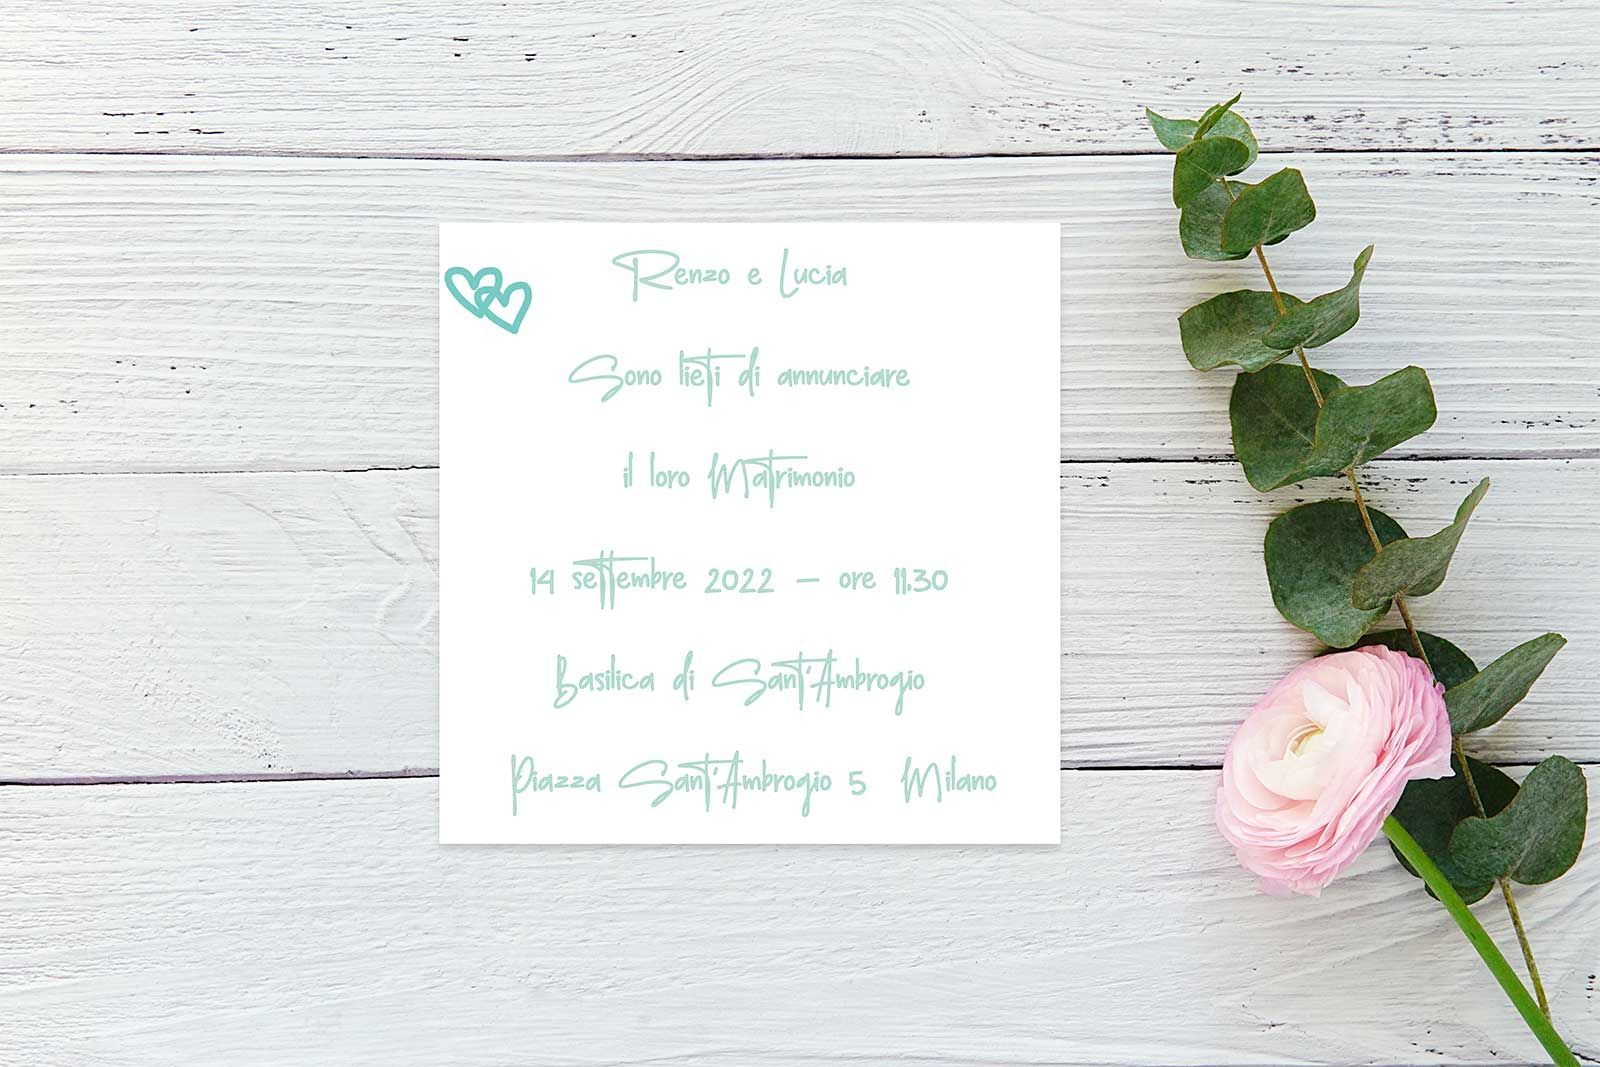 Renzo e Lucia
Sono lieti di annunciare
il loro Matrimonio
14 settembre 2022 – ore 11.30
Basilica di Sant'Ambrogio
Piazza Sant'Ambrogio 5 Milano